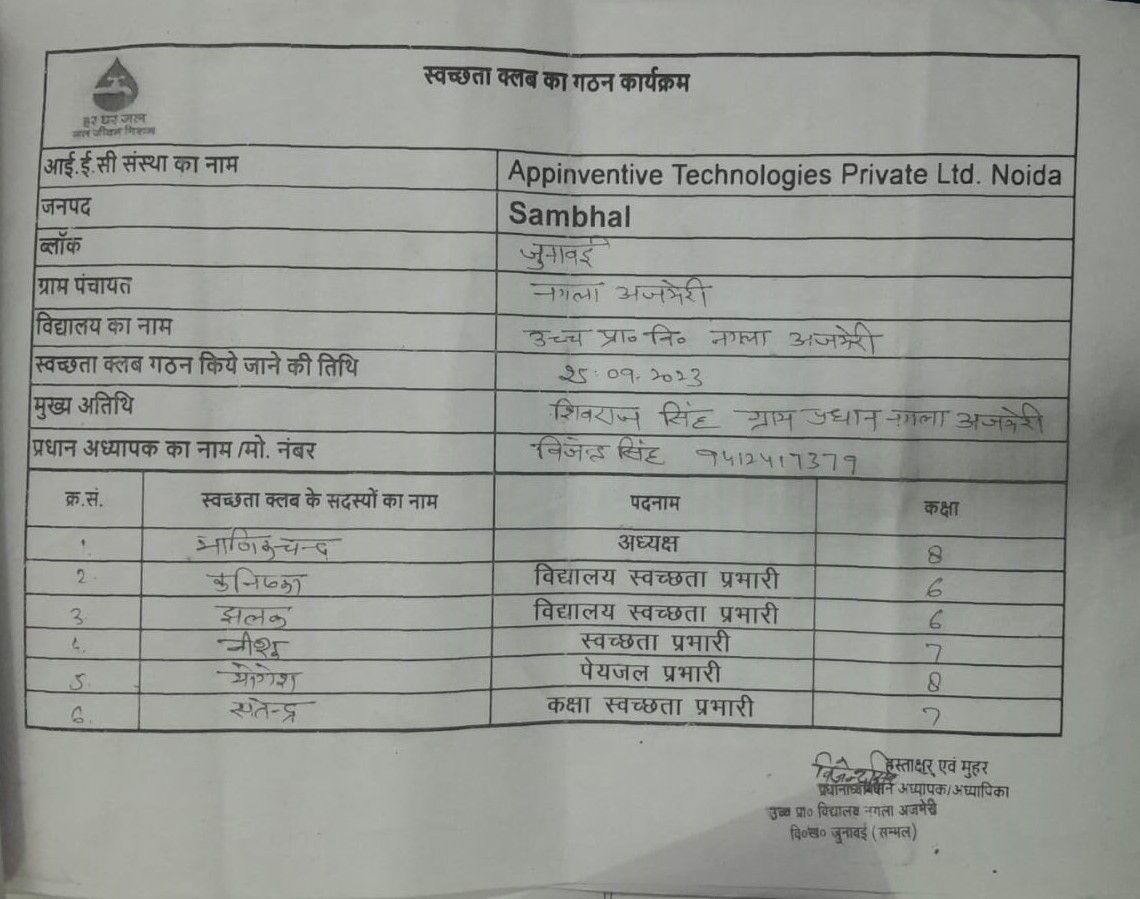 स्वच्छता क्लब का गठन कार्यक्रम
हर घर जल
जल जीवन मिशन
आई.ई.सी संस्था का नाम Appinventive Technologies Private Ltd. Noida
जनपद Sambhal
ब्लॉक जुनावई
ग्राम पंचायत नगला अजमेरी
विद्यालय का नाम उच्च प्रा० वि० नगला अजमेरी
स्वच्छता क्लब गठन किये जाने की तिथि 25.09.2023
मुख्य अतिथि शिवराज सिंह ग्राम प्रधान नगला अजमेरी
प्रधान अध्यापक का नाम /मो. नंबर विजेन्द्र सिंह 9412417379
क्र.सं. स्वच्छता क्लब के सदस्यों का नाम पदनाम कक्षा
1. माणिकचन्द अध्यक्ष 8
2. कनिष्का विद्यालय स्वच्छता प्रभारी 6
3. झलक विद्यालय स्वच्छता प्रभारी 6
4. स्वच्छता प्रभारी 7
5. योगेश पेयजल प्रभारी 8
6. सतेन्द्र कक्षा स्वच्छता प्रभारी 7
हस्ताक्षर एवं मुहर
अध्यापक/अध्यापिका
उच्च प्रा० विद्यालय नगला अजमेरी
वि०ख० जुनावई (सम्भल)